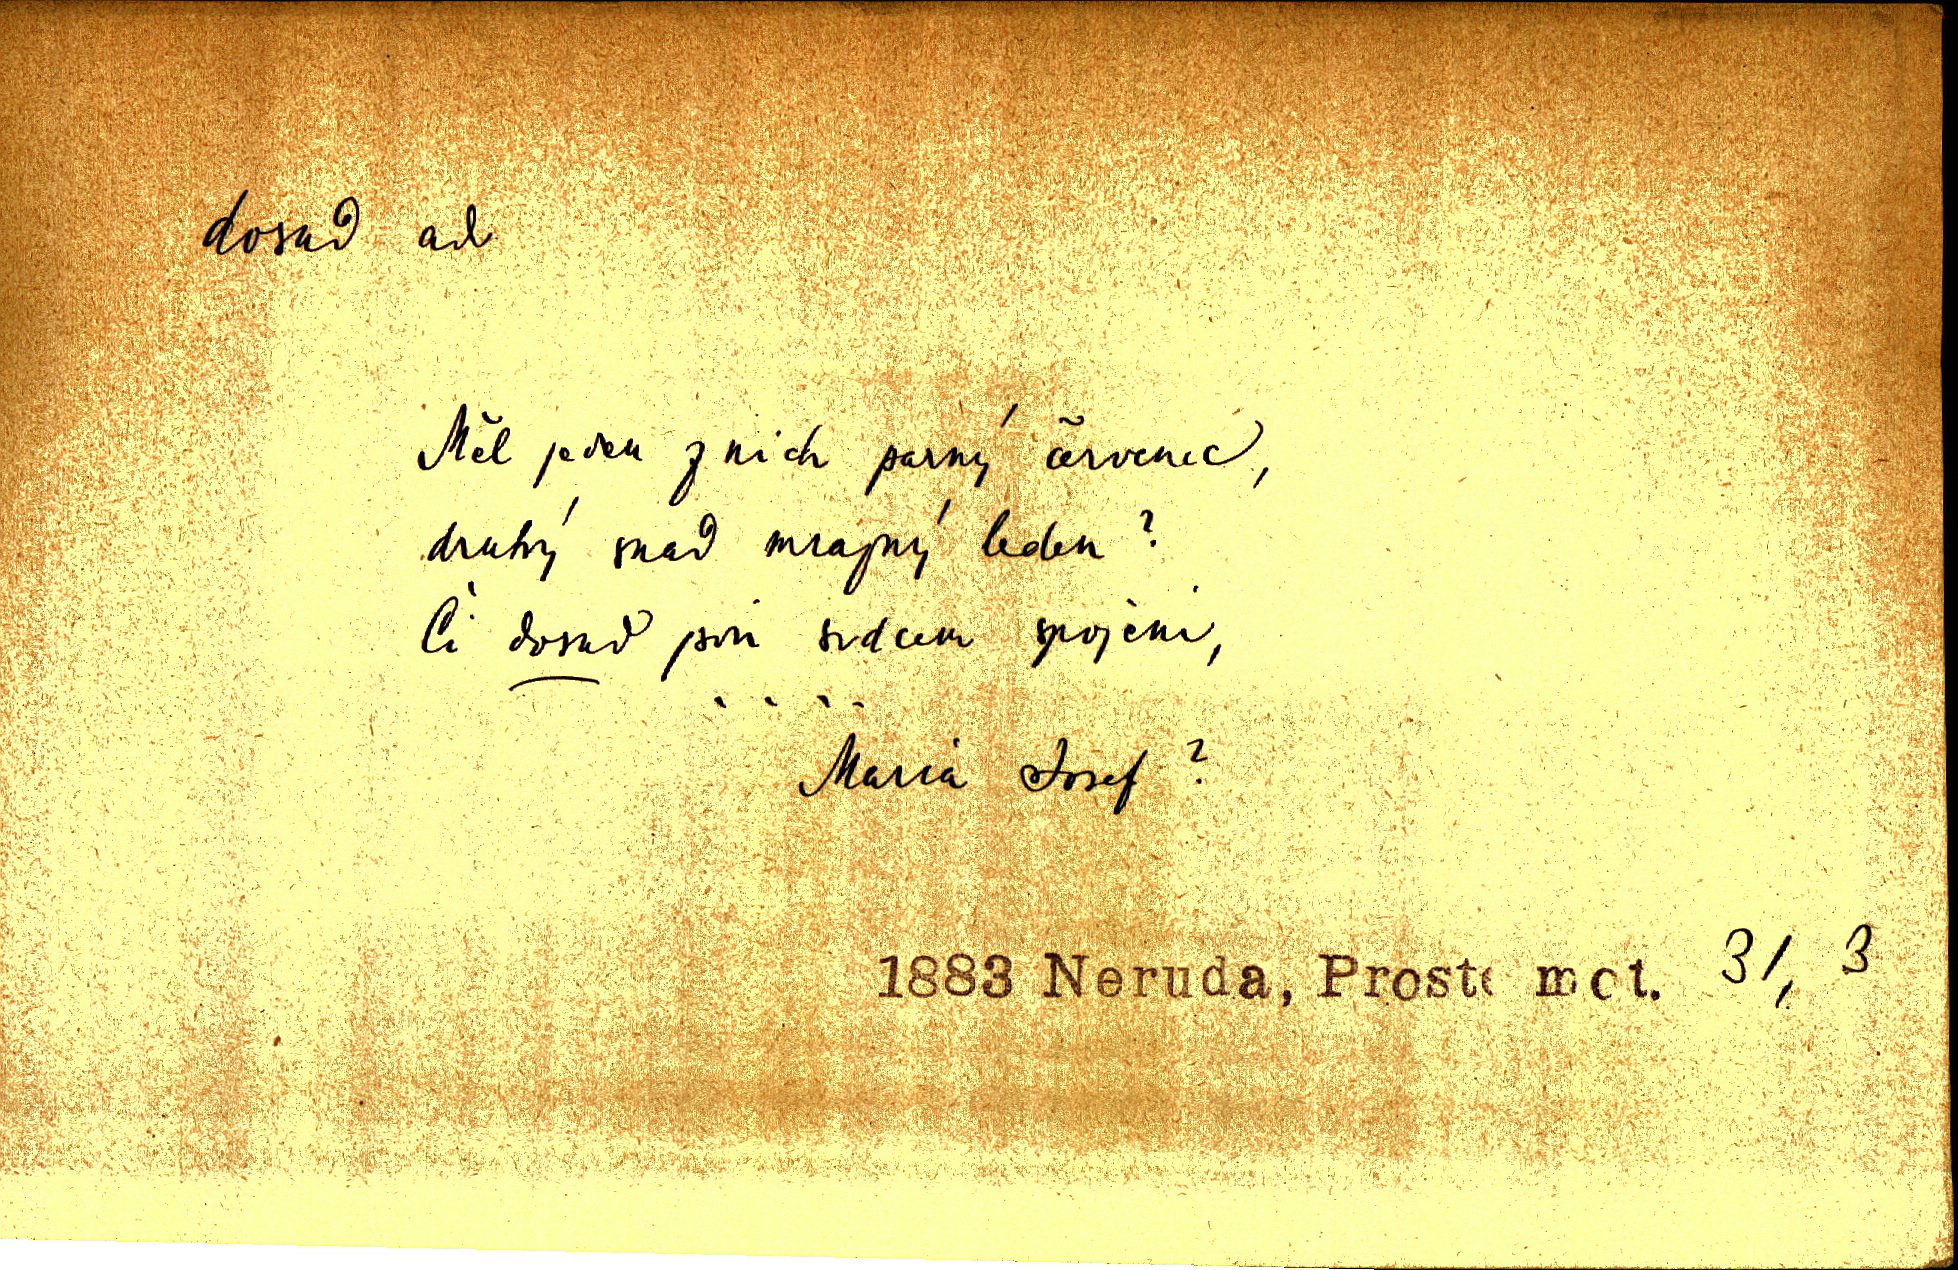 dosud ad
Měl jeden z nich parný červenec,
druhý snad mrazný leden?
Či dosud jsou srdcem spojeni,
. . . .
Maria Josef?
1883 Neruda, Prosté mot. 31, 3